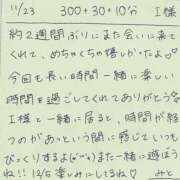 11/23　300+30+10分　I様
約2週間ぶりにまた会いに来て
くれて、めちゃくちゃ嬉しかったよ♡
今回も長い時間一緒に楽しい
時間を過ごしてくれてありがとう
I様と一緒に居ると、時間が経
つのがあっという間に感じていつも
びっくりするよ(˙˘˙)また一緒に遊ぼう
ね!! 12/5楽しみにしてるね♡ みと